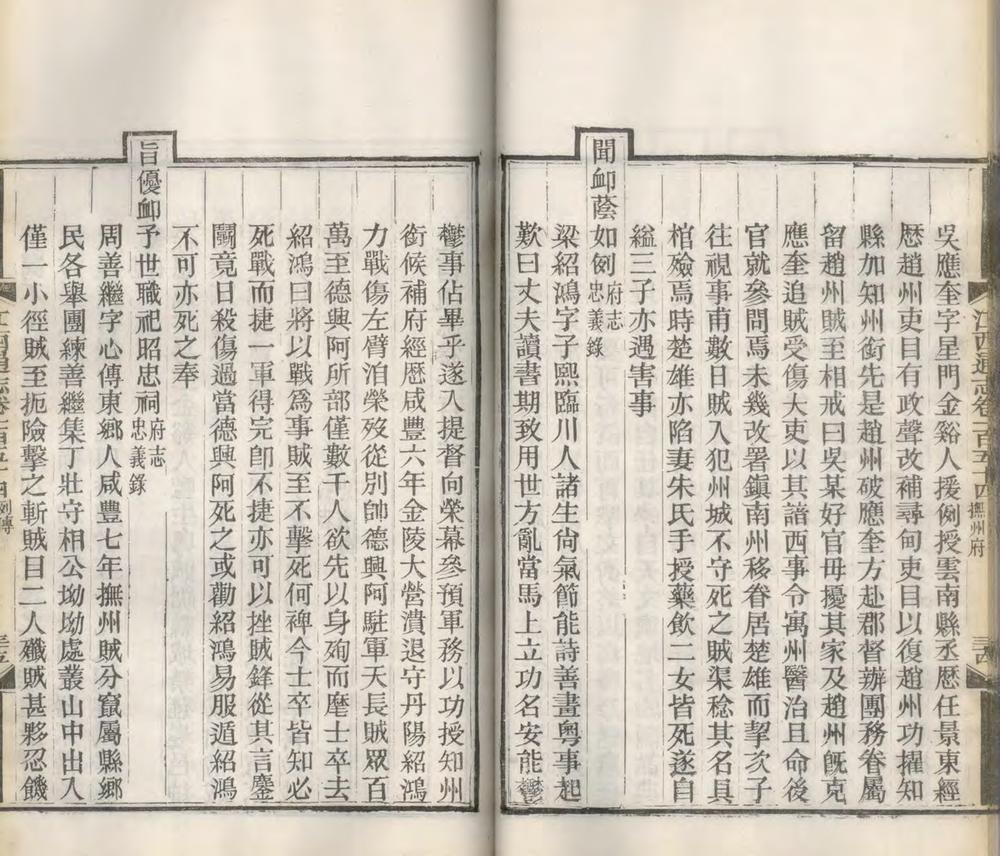 江西通志卷一百五十四 撫州府
三西
吳應奎字星門金谿人援例授雲南縣丞歷任景東經
歷趙州吏目有政聲改補尋甸吏目以復趙州功擢知
縣加知州銜先是趙州破應奎方赴郡督辦團務眷屬
留趙州賊至相戒曰吳某好官毋擾其家及趙州旣克
應奎追賊受傷大吏以其諳西事令寓州醫治且命後
官就參問焉未幾改署鎭南州移眷居楚雄而挈次子
往視事甫數日賊入犯州城不守死之賊渠稔其名具
棺殮焉時楚雄亦陷妻朱氏手授藥飲二女皆死遂自
縊三子亦遇害事
聞卹蔭如例府志忠義錄
梁紹鴻字子熙臨川人諸生尙氣節能詩善畫粤事起
歎曰丈夫讀書期致用世方亂當馬上立功名安能鬱
鬱事佔畢乎遂入提督向榮幕參預軍務以功授知州
銜候補府經歷咸豐六年金陵大營潰退守丹陽紹鴻
力戰傷左臂洎榮歿從別帥德興阿駐軍天長賊眾百
萬至德興阿所部僅數千人欲先以身殉而麾士卒去
紹鴻曰將以戰爲事賊至不擊死何裨今士卒皆知必
死戰而捷一軍得完卽不捷亦可以挫賊鋒從其言鏖
鬭竟日殺傷過當德興阿死之或勸紹鴻易服遁紹鴻
不可亦死之奉
旨優卹予世職祀昭忠祠府志忠義錄
周善繼字心傳東鄉人咸豐七年撫州賊分竄屬縣鄉
民各舉團練善繼集丁壯守相公坳坳處叢山中出入
僅一小徑賊至扼險擊之斬賊目二人殲賊甚夥忍饑